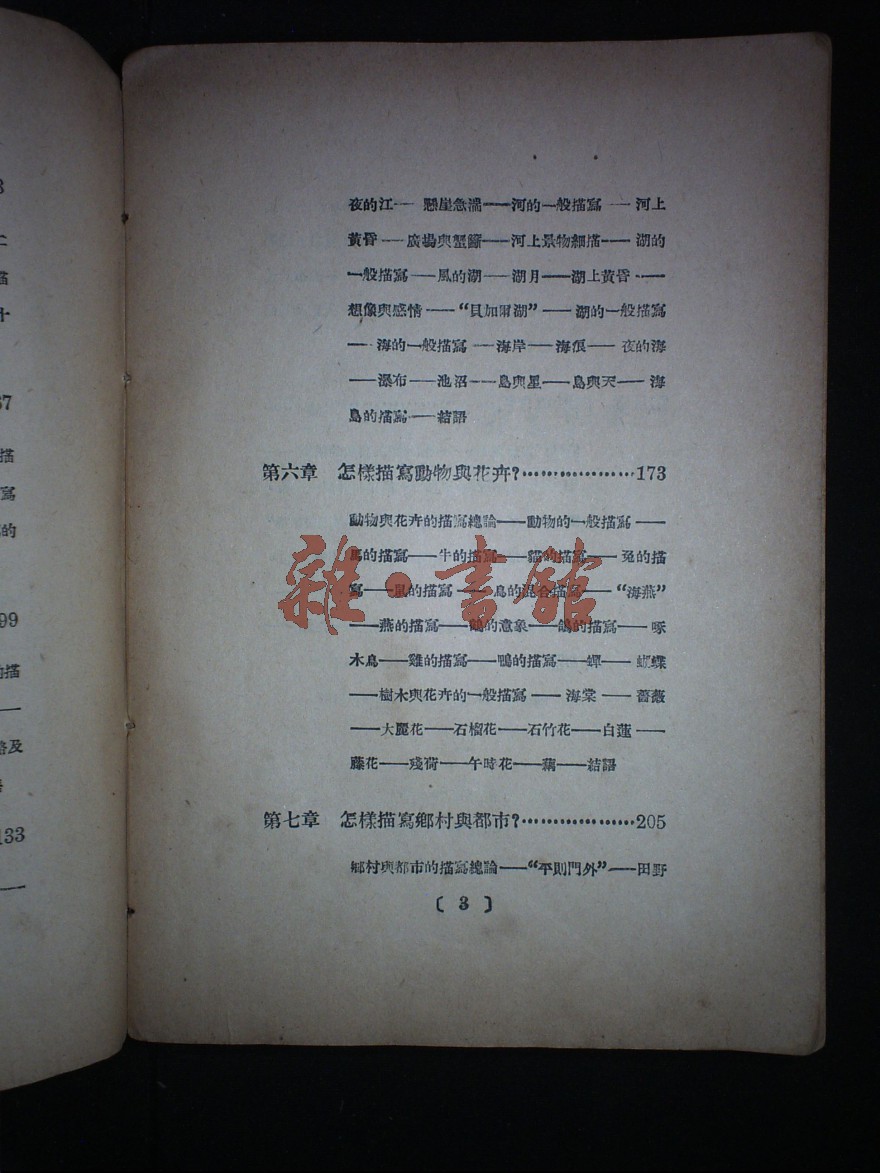 夜的江——懸崖急湍——河的一般描寫——河上
黃昏——廣場與蟹籪——河上景物細描——湖的
一般描寫——風的湖——湖月——湖上黃昏——
想像與感情——“貝加爾湖”——湖的一般描寫
——海的一般描寫——海岸——海浪——夜的海
——瀑布——池沼——島與星——島與天——海
島的描寫——結語
第六章 怎樣描寫動物與花卉?··················173
動物與花卉的描寫總論——動物的一般描寫——
馬的描寫——牛的描寫——貓的描寫——兔的描
寫——鼠的描寫——鳥的混合描寫——“海燕”
——燕的描寫——鶴的意象——的描寫——啄
木鳥——雞的描寫——鴨的描寫——蟬——蝴蝶
——樹木與花卉的一般描寫——海棠——薔薇
——大麗花——石榴花——石竹花——白蓮——
藤花——殘荷——午時花——藕——結語
第七章 怎樣描寫鄉村與都市?··················205
鄉村與都市的描寫總論——“平則門外”——田野
〔3〕
雜·書館
8
描
十
37
描
寫
的
99
的描
——
路及
133
——